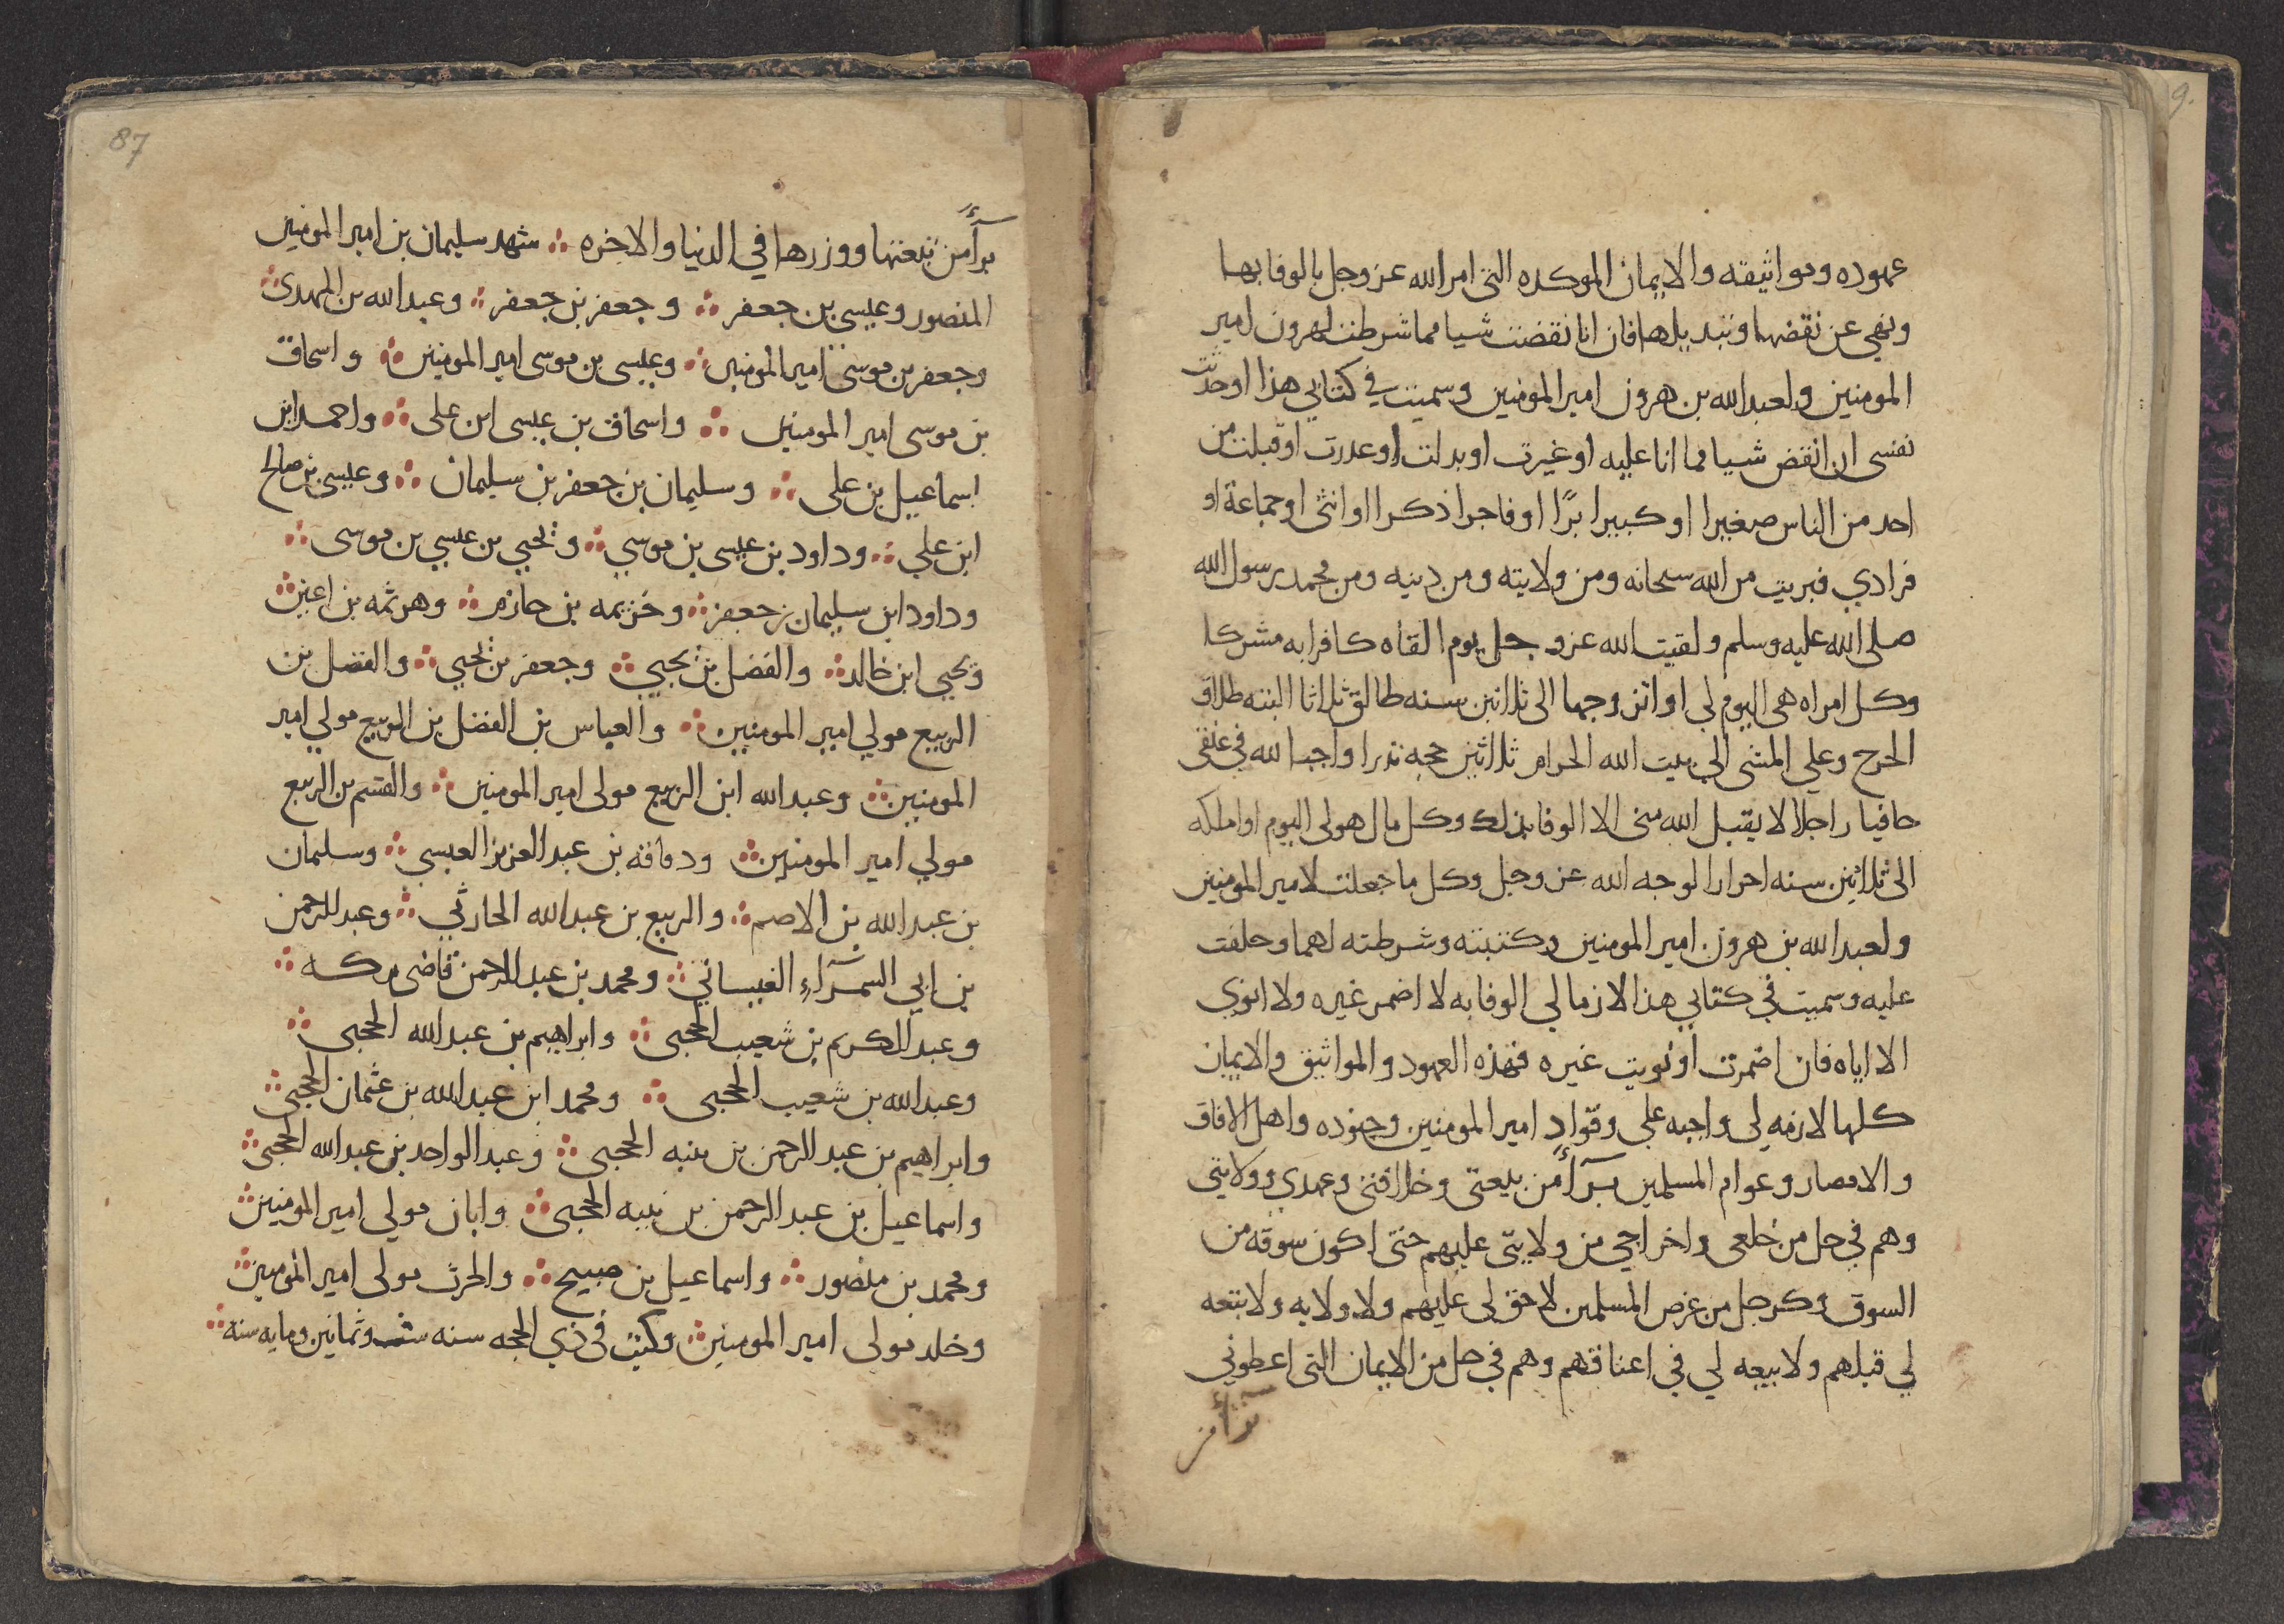 عهوده ومواثيقه والايمان الموكده التى امر الله عز وجل بالوفا بها
ونهي عن نقضها وتبديلها فان انا نقضت شيا مما شرطت لهرون امير
المومنين ولعبد الله بن هرون امير المومنين وسميت في كتابي هذا او حدثت
نفسى ان انقض شيا مما انا عليه او غيرت او بدلت او غدرت او قبلت من
احد من الناس صغيرا او كبيرا برًا او فاجرا ذكرا او انثى او جماعة او
فرادي فبريت من الله سبحانه ومن ولايته ومن دينه ومن محمد رسول الله
صلى الله عليه وسلم ولقيت الله عز وجل يوم القاه كافرا به مشركا
وكل امراه هى اليوم لي او اتزوجها الى ثلاثين سنه طالق ثلاثا البته طلاق
الحرج وعلي المشى الي بيت الله الحرام ثلاثين حجه نذرا واجبا لله في عنقى
حافيا راجلا لا يقبل الله منى الا الوفا بذلك وكل مال هو لى اليوم او املكه
الى ثلاثين سنه احرارا لوجه الله عز وجل وكل ما جعلت لامير المومنين
ولعبد الله بن هرون امير المومنين وكتبته وشرطته لهما وحلفت
عليه وسميت في كتابي هذا لازما لي الوفا به لا اضمر غيره ولا انوي
الا اياه فان اضمرت او نويت غيره فهذه العهود والمواثيق والايمان
كلها لازمه لى واجبه علي وقواد امير المومنين وجنوده واهل الافاق
والامصار وعوام المسلمين برآءٌ من بيعتى وخلافتى وعهدي وولايتى
وهم في حل من خلعى واخراجي من ولايتى عليهم حتى اكون سوقه من
السوق وكرجل من عرض المسلمين لا حق لى عليهم ولا ولايه ولا تبعه
لي قبلهم ولا بيعه لي في اعناقهم وهم في حل من الايمان التى اعطوني
برآء من
87
برآءٌ من تبعتها ووزرها في الدنيا والاخره شهد سليمان بن امير المومنين
المنصور وعيسى بن جعفر وجعفر بن جعفر وعبد الله بن المهدى
وجعفر بن موسى امير المومنين وعيسى بن موسى امير المومنين واسحاق
بن موسى امير المومنين واسحاق بن عيسى ابن على واحمد ابن
اسماعيل بن على وسليمان بن جعفر بن سليمان وعيسى بن صالح
ابن علي وداود بن عيسى بن موسي ويحيي بن عيسي بن موسى
وداود ابن سليمان بن جعفر وخزيمه بن حازم وهرثمه بن اعين
ويحيى ابن خالد والفضل بن يحيي وجعفر بن يحيي والفضل بن
الربيع مولي امير المومنين والعباس بن الفضل بن الربيع مولي امير
المومنين وعبد الله ابن الربيع مولى امير المومنين والقسم بن الربيع
مولي امير المومنين ودقاقه بن عبد العزيز العبسي وسليمان
بن عبد الله بن الاصم والربيع بن عبد الله الحارثي وعبد الرحمن
بن ابي السمرآء الغساني ومحمد بن عبد الرحمن قاضى مكه
وعبد الكريم بن شعيب الحجبى وابراهيم بن عبد الله الحجبى
وعبد الله بن شعيب الحجبى ومحمد ابن عبد الله بن عثمان الحجبى
وابراهيم بن عبد الرحمن بن نبيه الحجبى وعبد الواحد بن عبد الله الحجبى
واسماعيل بن عبد الرحمن بن نبيه الحجبى وابان مولي امير المومنين
ومحمد بن منصور واسماعيل بن صبيح والحرث مولى امير المومنين
وخلد مولى امير المومنين وكتب في ذي الحجه سنه ست وثمانين ومايه سنه